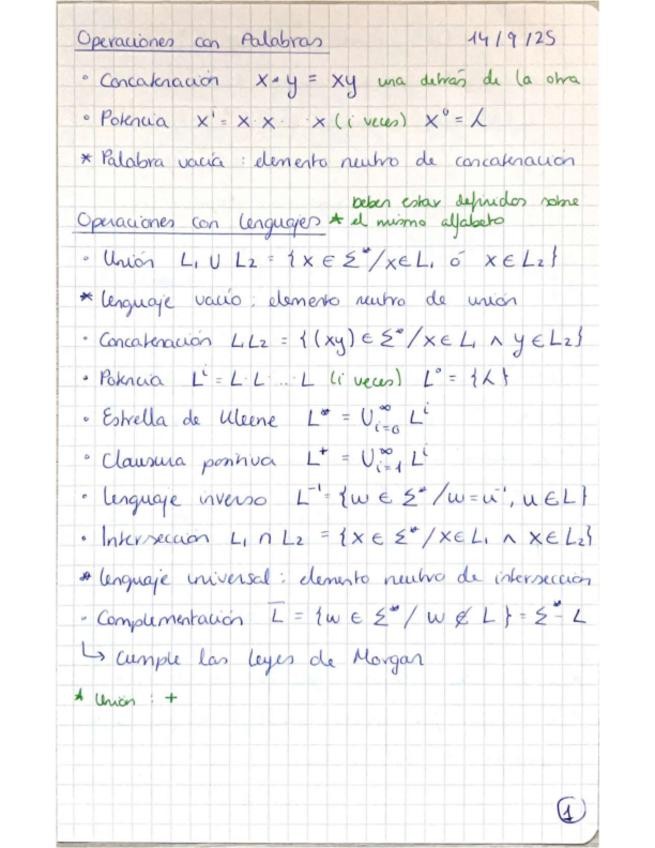 Operaciones con Palabras 14/9/25
• Concatenación x·y = xy una detrás de la otra
• Potencia xⁱ = x·x· ·x (i veces) x⁰ = λ
* Palabra vacía : elemento neutro de concatenación
deben estar definidos sobre
Operaciones con lenguajes * el mismo alfabeto
• Unión L₁ ∪ L₂ = {x ∈ Σ*/x∈L₁ ó x∈L₂}
* lenguaje vacío : elemento neutro de unión
• Concatenación L₁L₂ = {(xy) ∈ Σ*/x∈L₁ ∧ y∈L₂}
• Potencia Lⁱ = L·L·...·L (i veces) L⁰ = {λ}
• Estrella de Kleene L* = ∪_{i=0}^∞ Lⁱ
• Clausura positiva L⁺ = ∪_{i=1}^∞ Lⁱ
• lenguaje inverso L⁻¹ = {w ∈ Σ*/w=u⁻¹, u∈L}
• Intersección L₁ ∩ L₂ = {x ∈ Σ*/x∈L₁ ∧ x∈L₂}
* lenguaje universal : elemento neutro de intersección
- Complementación L̅ = {w ∈ Σ*/ w ∉ L} = Σ* - L
↳ cumple las leyes de Morgan
* Unión : +
1